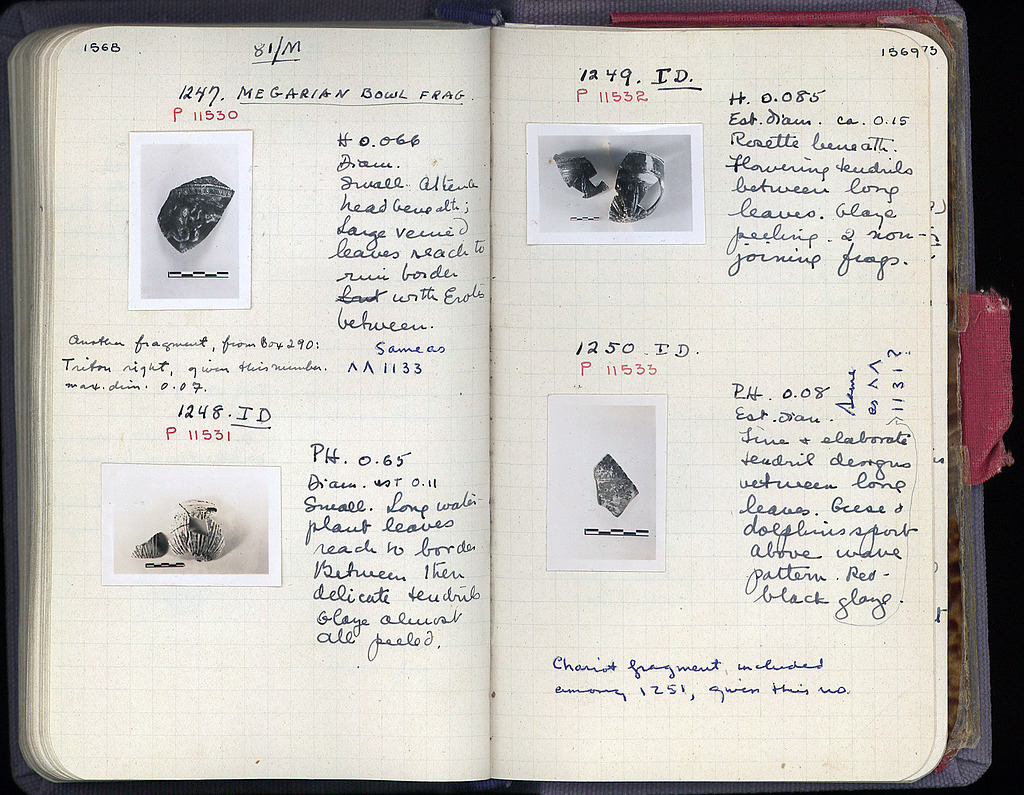 1568
81/M
1247. MEGARIAN BOWL FRAG.
P 11530
H 0.066
Diam.
Small. Athena
head beneath;
Large veined
leaves reach to
rim border
but with Erotes
between.
Same as
ΛΛ 1133
Another fragment, from Box 290:
Triton right, given this number.
max. dim. 0.07.
1248. ID
P 11531
PH. 0.65
Diam. est 0.11
Small. Long water
plant leaves
reach to border
Between them
delicate tendrils
Glaze almost
all peeled.
1569
73
1249. ID.
P 11532
H. 0.085
Est. diam. ca. 0.15
Rosette beneath.
Flowering tendrils
between long
leaves. Glaze
peeling. 2 non-
joining frags.
1250. ID.
P 11533
PH. 0.08
Est. diam.
Same
as ΛΛ
1131?
Fine & elaborate
tendril designs
between long
leaves. Geese &
dolphins sport
above wave
pattern. Red-
black glaze.
Chariot fragment, included
among 1251, given this no.